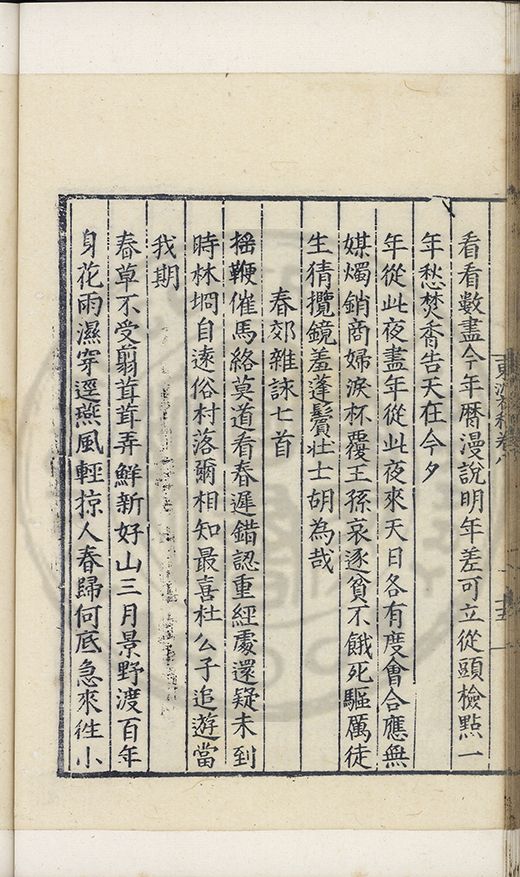 看看數盡今年曆漫說明年差可立從頭檢點一
年愁焚香告天在今夕
年從此夜盡年從此夜來天日各有度會合應無
媒燭銷商婦淚杯覆王孫哀逐貧不餓死驅厲徒
生猜攬鏡羞蓬鬢壯士胡為哉
春郊雜詠七首
揺鞭催馬絡莫道看春遲錯認重經處還疑未到
時林坰自遠俗村落爾相知最喜杜公子追遊當
我期
春草不受翦茸茸弄鮮新好山三月景野渡百年
身花雨濕穿逕燕風輕掠人春歸何底急來徃小